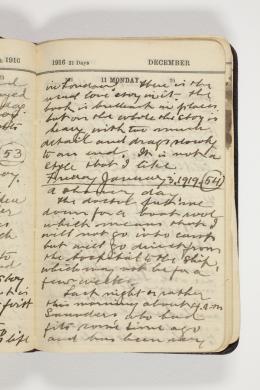 1916
1916 21 Days DECEMBER
11 MONDAY
in London. There is the
usual love story in it. the
book is brilliant in places
but on the whole the story is
heavy with too much
detail and drags slowly
to an end. It is not a
style that I like.
Friday January 3, 1919. (54)
a day
the doctor put me
down for a boat
which means that I
will not go into camp
but will go direct from
the hospital to the ship
which may not be for a
few weeks.
Last night or rather
this morning about 4 a.m
Saunders who had
fits some time ago
and has been very
53